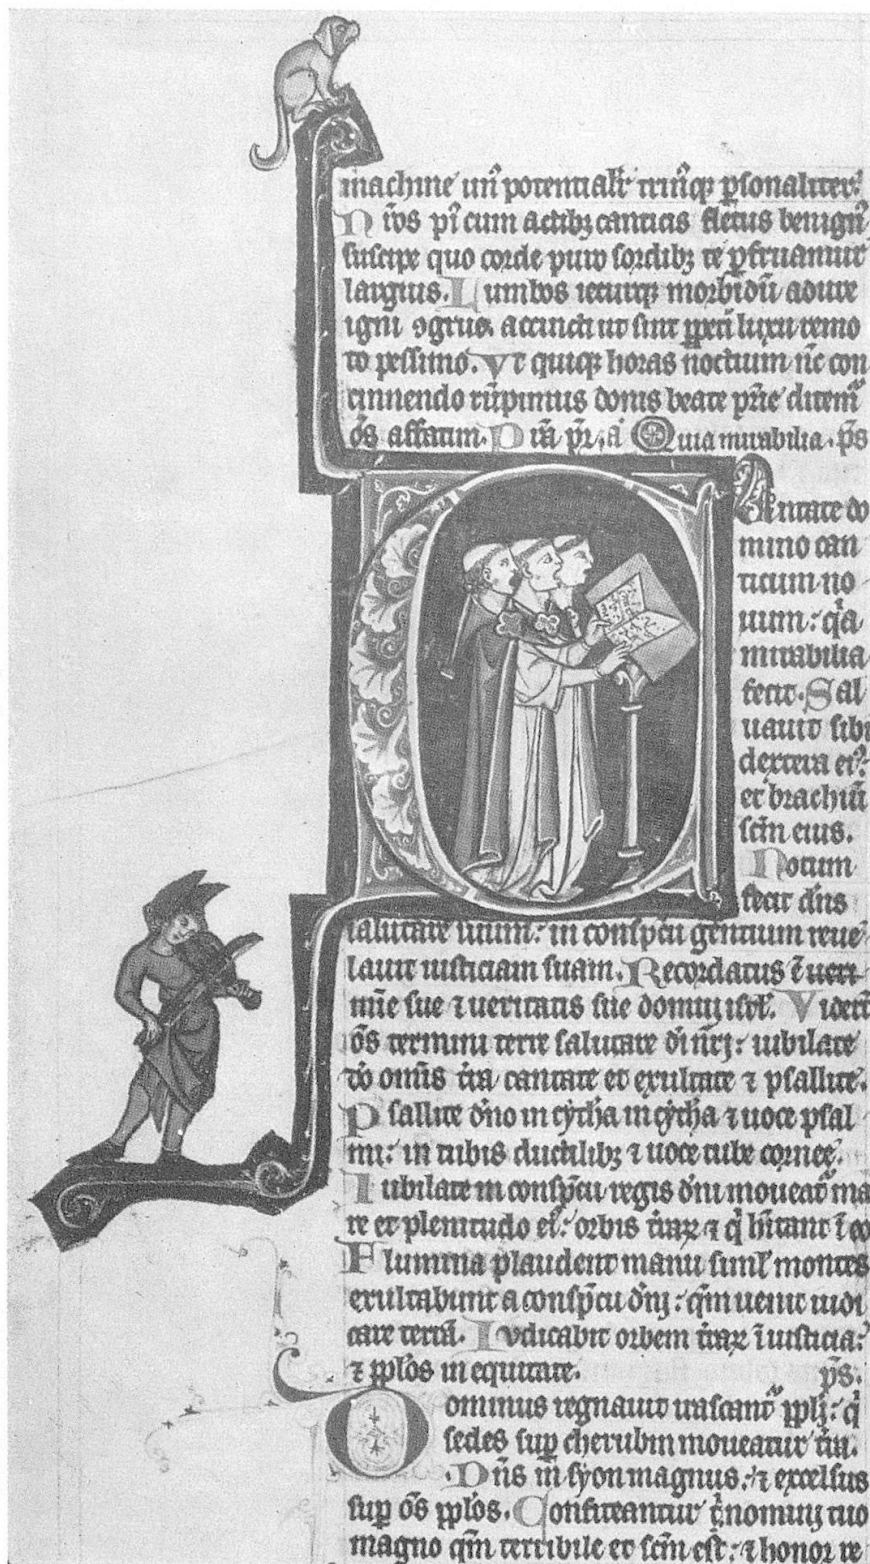 machine un᷒ potentialit᷑ trinq᷒ ꝑsonaliter.
Nr̄os pi᷒ cum actibꝫ canticis fletus benign᷒
suscipe quo corde puro sordibꝫ te ꝑfruamur
largius. Lumbos iecurqꝫ morbidū adure
igni ↄgruo. accincti ut sint ꝑpeti luxu remo
to pessimo. Vt quiqꝫ horas noctium nūc con
cinnendo rūpimus donis beate pr̄ie ditem᷒
om̄s affatim. Quia mirabilia. pš
Cantate do
mino can
ticum no
uum: q̄a
mirabilia
fecit. Sal
uauit sibi
dextera ei᷒:
et brachiū
scm̄ eius.
Notum
fecit dn̄s
salutare suum: in conspectu gentium reue
lauit iusticiam suam. Recordatus ē iseri
mīe sue ⁊ ueritatis sue domuy isrl̄. Viderūt
om̄s termini terre salutare di nr̄i: iubilate
do omīs tr̄a cantate et exultate ⁊ psallite.
Psallite dn̄o in cythᷓa in cythᷓa ⁊ uoce psal
mi: in tubis ductilibꝫ ⁊ uoce tube cornee.
Iubilate in conspc̄u regis dn̄i moueat᷑ ma
re et plenitudo ei᷒: orbis tr̄aꝝ ⁊ q̄ hītant ī eo
Flumina plaudent manu siml̄ montes
exultabunt a conspc̄u dn̄i: qm̄ uenit iudi
care terrā. Iudicabit orbem tr̄aꝝ ī iusticia:
⁊ ppl̄os in equitate. pš:
Dominus regnauit irascant᷑ ppl̄i: q̄
sedes suꝑ cherubin moueatur tr̄a.
Dn̄s in syon magnus: ⁊ excelsus
suꝑ om̄s ppl̄os. Confiteantur nomini tuo
magno qm̄ terribile et scm̄ est: ⁊ honor re